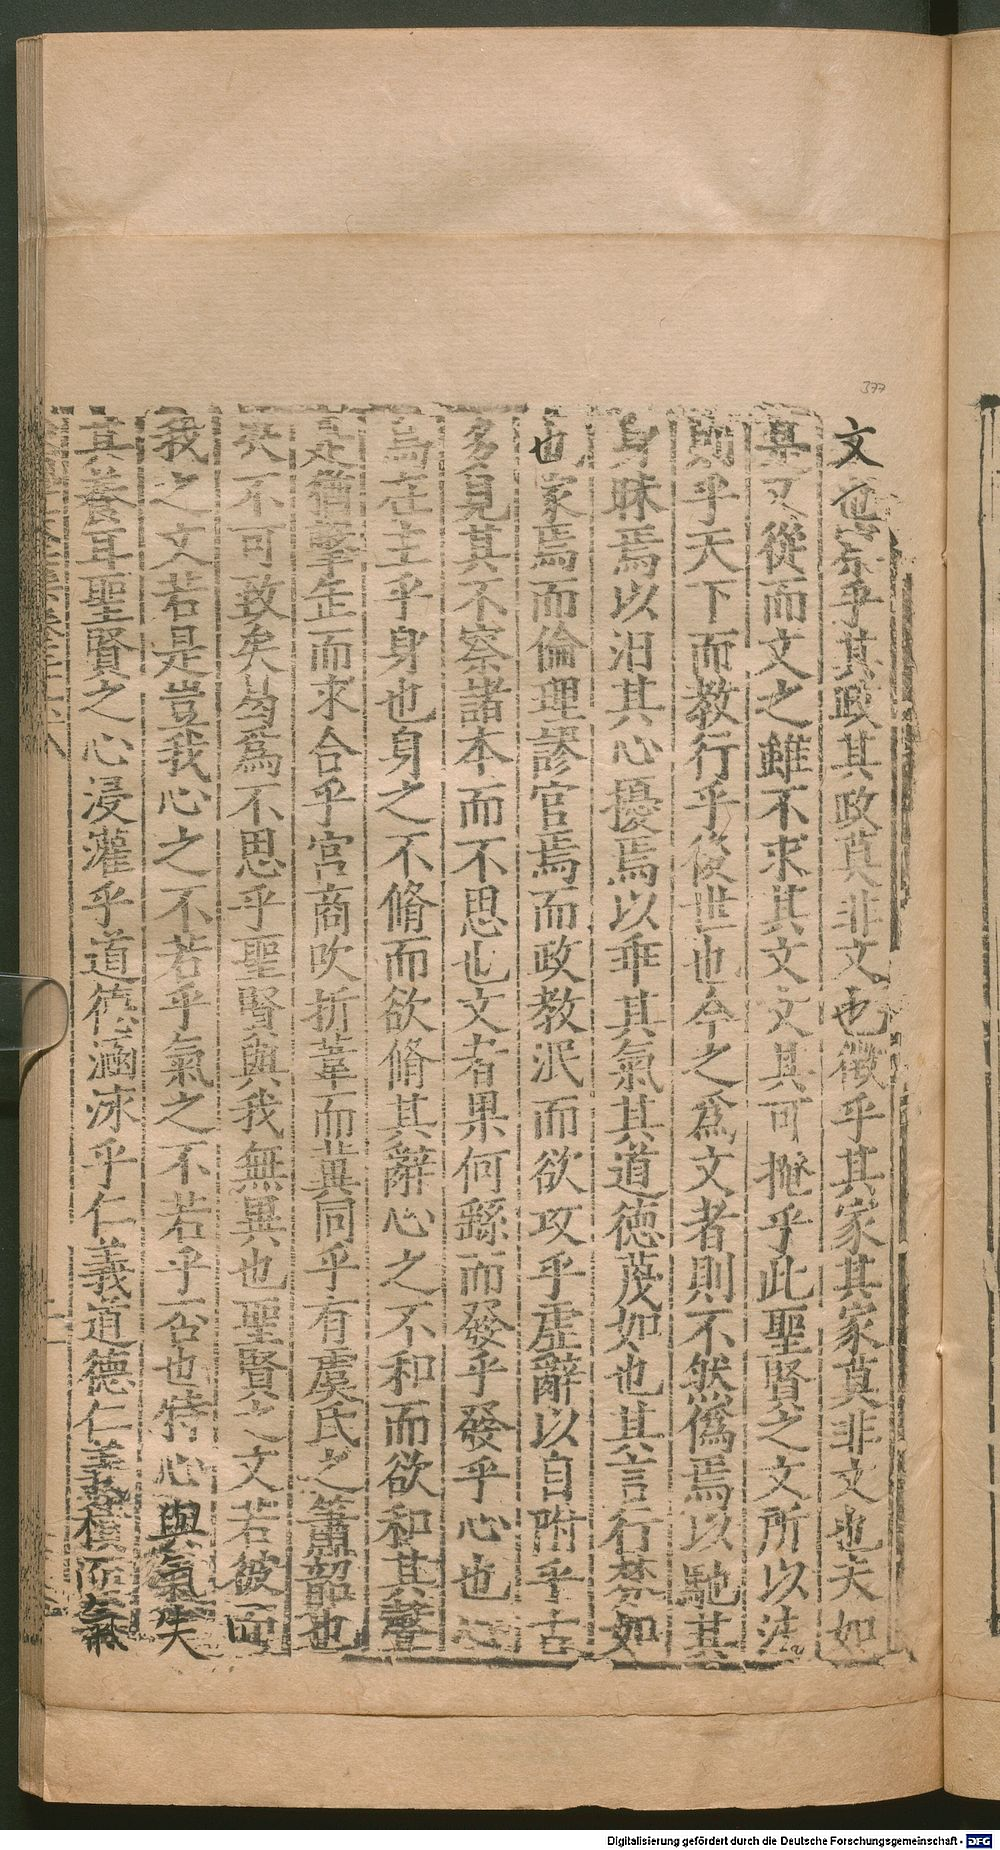 377
文也察乎其政其政莫非文也徵乎其家其家莫非文也夫如
是又從而文之雖不求其文文其可掩乎此聖賢之文所以法
則乎天下而教行乎後世也今之爲文者則不然僞焉以馳其
身昧焉以汩其心擾焉以乖其氣其道德蔑如也其言行棼如
也家焉而倫理謬官焉而政教泯而欲攻乎虛辭以自附乎古
多見其不察諸本而不思也文者果何繇而發乎發乎心也心
烏在主乎身也身之不脩而欲脩其辭心之不和而欲和其聲
是猶擊缶而求合乎宮商吹折葦而冀同乎有虞氏之簫韶也
决不可致矣曷爲不思乎聖賢與我無異也聖賢之文若彼而
我之文若是豈我心之不若乎氣之不若乎否也特心與氣失
其養耳聖賢之心浸灌乎道德涵泳乎仁義道德仁義積而氣
Digitalisierung gefördert durch die Deutsche Forschungsgemeinschaft - DFG